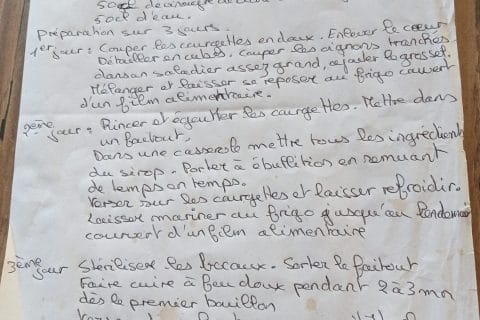 50cl de vinaigre de
50cl d'eau.
Préparation sur 3 jours.
1er jour : Couper les courgettes en deux. Enlever le coeur
Détailler en cubes. Couper les oignons tranchés.
dans un saladier assez grand, ajouter le gros sel.
Mélanger et laisser se reposer au frigo couvert
d'un film alimentaire.
2ème jour : Rincer et égoutter les courgettes. Mettre dans
un faitout.
Dans une casserole mettre tous les ingrédients
du sirop. Porter à ébullition en remuant
de temps en temps.
Verser sur les courgettes et laisser refroidir.
Laisser mariner au frigo jusqu'au lendemain
couvert d'un film alimentaire
3ème jour Stériliser les bocaux. Sortir le faitout
Faire cuire à feu doux pendant 2 à 3 mn
dès le premier bouillon